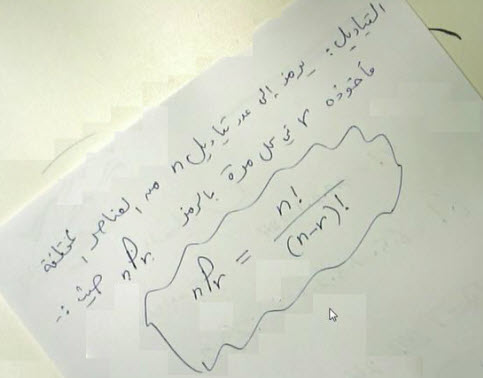 التباديل: يرمز إلى عدد تباديل n من العناصر المختلفة
مأخوذه r في كل مرة بالرمز nPr حيث :-
nPr = n! / (n-r)!